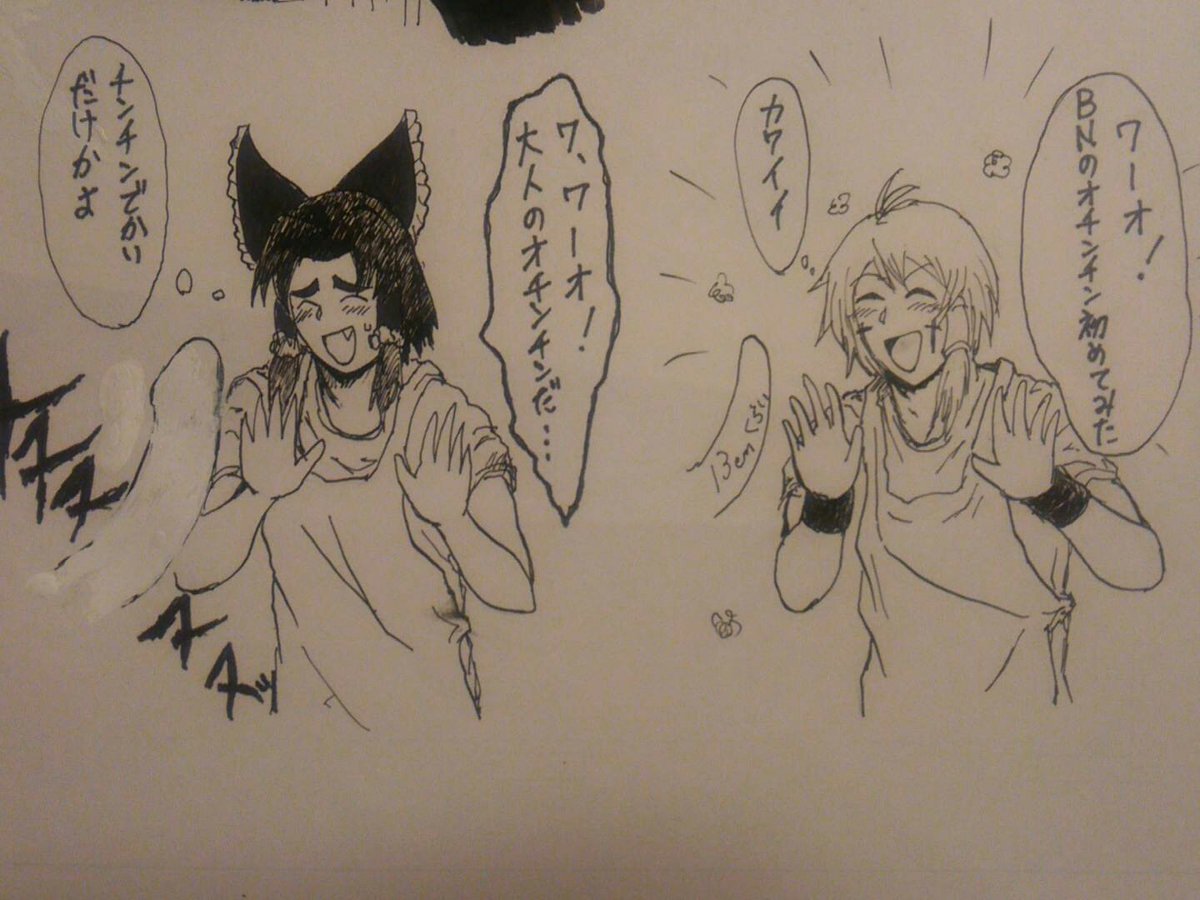 ワーオ！
BNのオチンチン初めてみた
カワイイ
13cmくらい
ワ、ワーオ！
大人のオチンチンだ…
チンチンでかい
だけかよ